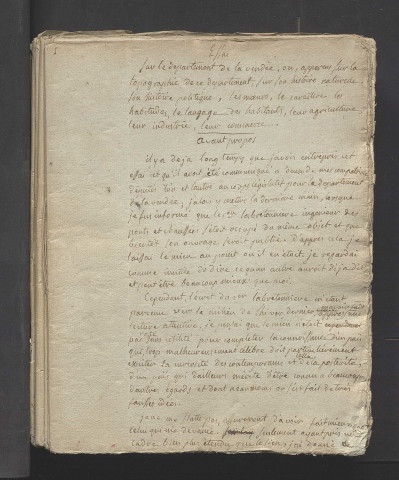 Essai
sur le departement de la vendée, ou, apperçu sur la
topographie de ce departement, sur son histoire naturelle,
son histoire politique, les moeurs, le caractère les
habitudes, le langage des habitants, leur agriculture
leur industrie, leur commerce.
avant propos
il y a deja longtemps que j'avois entrepris cet
essai et qu'il avoit été communiqué a deux de mes compatriotes
députés l'un et l'autre au corps législatif pour le departement
de la vendée; j'alois y mettre la derniere main, lorsque
je fus informé que le cen labretonniere ingenieur des
ponts et chaussées s'etoit occupé du même objet et que
bientôt son ouvrage seroit publié. d'apres cela je
laissai le mien au point ou il en etoit. je regardai
comme inutile de dire ce qu'un autre auroit deja dit
et peut être beaucoup mieux que moi.
Cependant, l'écrit du cen labretonniere m'étant
parvenu vers le milieu de l'hiver dernier, une
lecture attentive, je pensai que le mien n'etoit
pas sans utilité pour completer la connoissance d'un pais
qui, trop malheureusement célebre doit particulierement
exciter la curiosité des contemporains et de la postérité
d'un pais qui d'ailleurs merite d'être connu a beaucoup
d'autres égards et dont neanmoins on s'est fait de très
fausses idées.
je ne me flatte pas, assurement d'avoir fait mieux que
celui qui me devance. seulement ayant pris un
cadre bien plus étendu que le sien, j'ai donné de